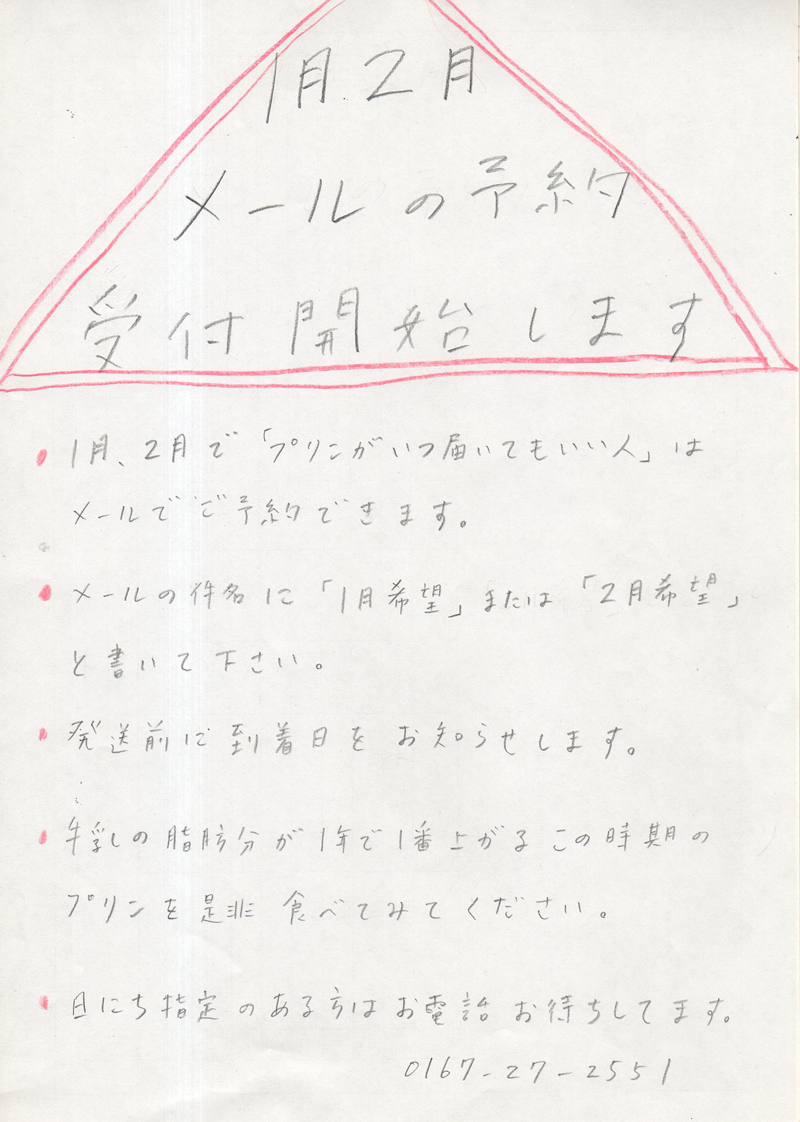 1月2月
メールの予約
受付開始します
1月、2月で「プリンがいつ届いてもいい人」は
メールでご予約できます。
メールの件名に「1月希望」または「2月希望」
と書いて下さい。
発送前に到着日をお知らせします。
牛乳の脂肪分が1年で1番上がるこの時期の
プリンを是非食べてみてください。
日にち指定のある方はお電話お待ちしてます。
0167-27-2551